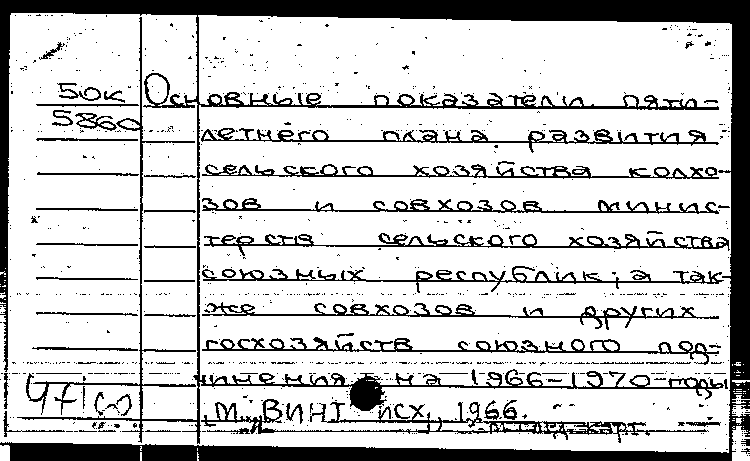 50К Основные показатели пяти-
5860 летнего плана развития
сельского хозяйства колхо-
зов и совхозов минис-
терств сельского хозяйства
союзных республик; а так-
же совхозов и других
госхозяйств союзного под-
чинения на 1966-1970 годы
М., 1966.